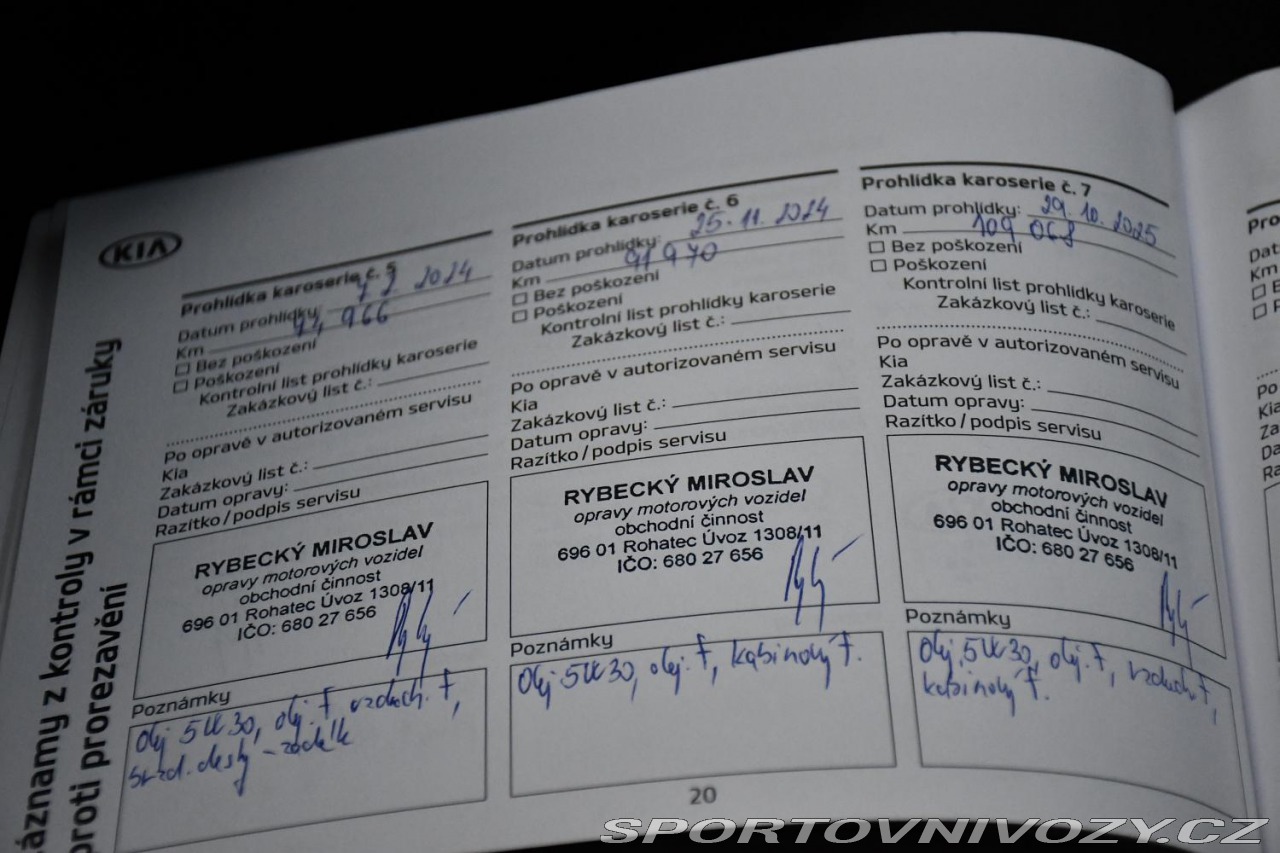 Záznamy z kontroly v rámci záruky
proti prorezavění
KIA
Prohlídka karoserie č. 5
Datum prohlídky: 2024
Km 74 966
Bez poškození
Poškození
Kontrolní list prohlídky karoserie
Zakázkový list č.:
Po opravě v autorizovaném servisu
Kia
Zakázkový list č.:
Datum opravy:
Razítko / podpis servisu
RYBECKÝ MIROSLAV
opravy motorových vozidel
obchodní činnost
696 01 Rohatec Úvoz 1308/11
IČO: 680 27 656
Poznámky
Olej 5W30, olej. f, vzduch. f,
brzd. desky - zadek
Prohlídka karoserie č. 6
Datum prohlídky: 25. 11. 2024
Km 91 970
Bez poškození
Poškození
Kontrolní list prohlídky karoserie
Zakázkový list č.:
Po opravě v autorizovaném servisu
Kia
Zakázkový list č.:
Datum opravy:
Razítko / podpis servisu
RYBECKÝ MIROSLAV
opravy motorových vozidel
obchodní činnost
696 01 Rohatec Úvoz 1308/11
IČO: 680 27 656
Poznámky
Olej 5W30, olej. f, kabinový f.
Prohlídka karoserie č. 7
Datum prohlídky: 29. 10. 2025
Km 109 068
Bez poškození
Poškození
Kontrolní list prohlídky karoserie
Zakázkový list č.:
Po opravě v autorizovaném servisu
Kia
Zakázkový list č.:
Datum opravy:
Razítko / podpis servisu
RYBECKÝ MIROSLAV
opravy motorových vozidel
obchodní činnost
696 01 Rohatec Úvoz 1308/11
IČO: 680 27 656
Poznámky
Olej 5W30, olej. f, vzduch f,
kabinový f.
20
SPORTOVNIVOZY.CZ